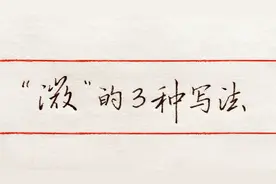 “微”的3种写法